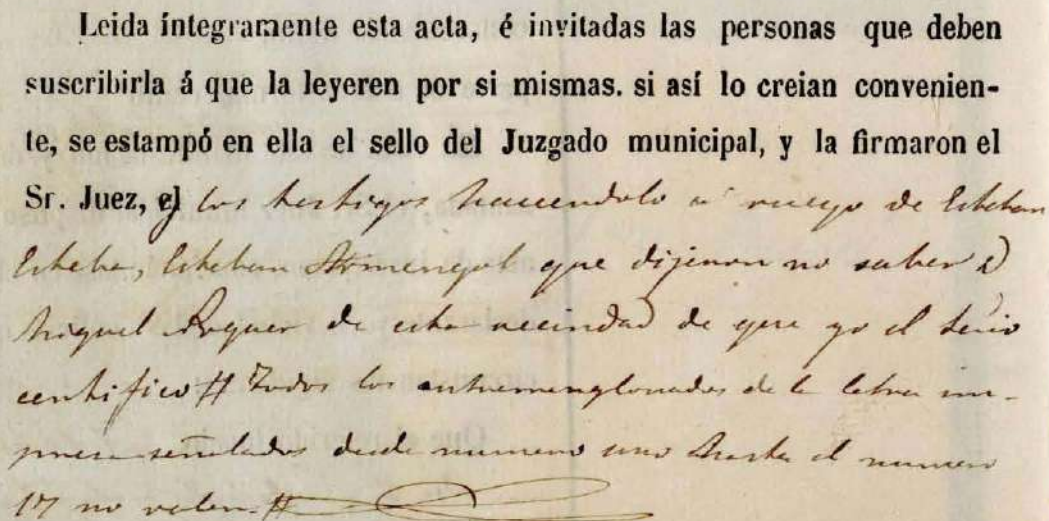 Leida íntegramente esta acta, é invitadas las personas que deben
suscribirla á que la leyeren por si mismas. si así lo creian convenien-
te, se estampó en ella el sello del Juzgado municipal, y la firmaron el
Sr. Juez, el los testigos haciendolo á ruego de Esteban
Esteba, Esteban Armengol que dijeron no saber
Miquel Roquer de esta vecindad de que yo el Srio
certifico # Todos los entrerrenglonados de la letra im-
presa señalados desde numero uno hasta el numero
17 no valen. #